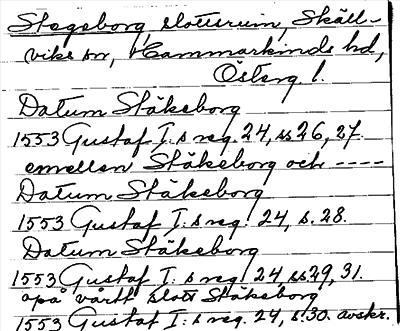 Stegeborg, slottsruin, Skäll-
viks sn, Hammarkinds hd,
Österg. l.
Datum Stäkeborg
1553 Gustaf I:s reg. 24, ss 26, 27.
emellen Stäkeborg och ----
Datum Stäkeborg
1553 Gustaf I:s reg. 24, s. 28.
Datum Stäkeborg
1553 Gustaf I:s reg. 24 ss 29, 31.
opå vårtt slott Stäkeborg
1553 Gustaf I:s reg. 24, s. 30. avskr.